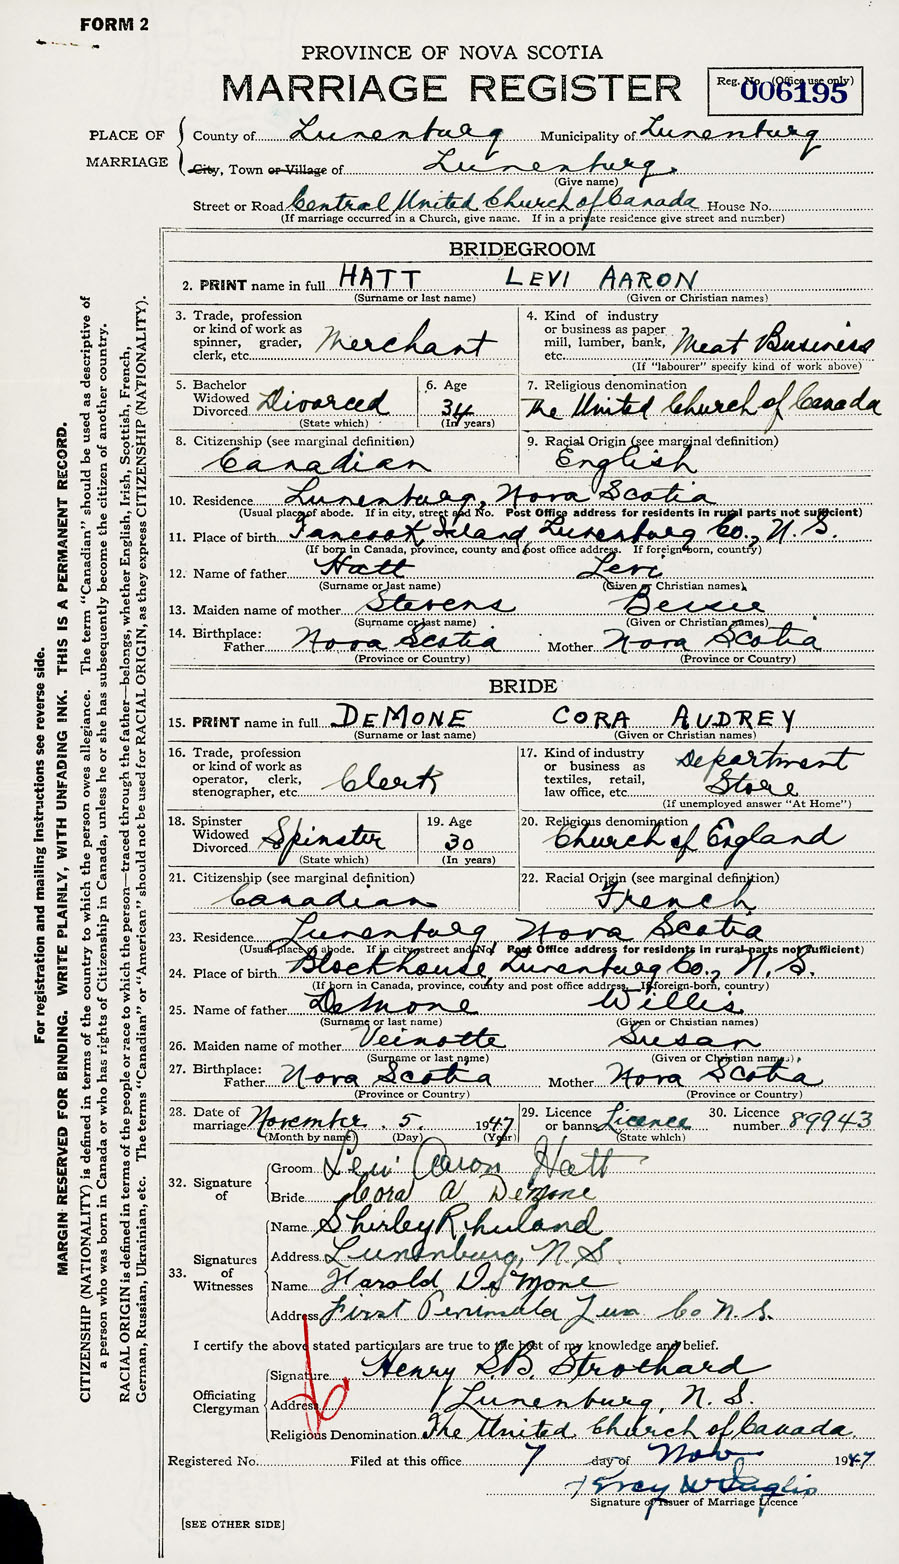 FORM 2
PROVINCE OF NOVA SCOTIA
MARRIAGE REGISTER
Reg. No. (Office use only)
006195
PLACE OF MARRIAGE
County of Lunenburg Municipality of Lunenburg
City, Town or Village of Lunenburg.
(Give name)
Street or Road Central United Church of Canada House No.
(If marriage occurred in a Church, give name. If in a private residence give street and number)
BRIDEGROOM
2. PRINT name in full HATT LEVI AARON
(Surname or last name) (Given or Christian names)
3. Trade, profession or kind of work as spinner, grader, clerk, etc. Merchant
4. Kind of industry or business as paper mill, lumber, bank, etc. Meat Business
(If "labourer" specify kind of work above)
5. Bachelor Widowed Divorced Divorced
(State which)
6. Age 34
(In years)
7. Religious denomination
The United Church of Canada
8. Citizenship (see marginal definition)
Canadian
9. Racial Origin (see marginal definition)
English
10. Residence Lunenburg, Nova Scotia
(Usual place of abode. If in city, street and No. Post Office address for residents in rural parts not sufficient)
11. Place of birth Tancook Island Lunenburg Co., N.S.
(If born in Canada, province, county and post office address. If foreign born, country)
12. Name of father Hatt Levi
(Surname or last name) (Given or Christian names)
13. Maiden name of mother Stevens Bessie
(Surname or last name) (Given or Christian names)
14. Birthplace: Father Nova Scotia Mother Nova Scotia
(Province or Country) (Province or Country)
BRIDE
15. PRINT name in full DEMONE CORA AUDREY
(Surname or last name) (Given or Christian names)
16. Trade, profession or kind of work as operator, clerk, stenographer, etc. Clerk
17. Kind of industry or business as textiles, retail, law office, etc. Department Store
(If unemployed answer "At Home")
18. Spinster Widowed Divorced Spinster
(State which)
19. Age 30
(In years)
20. Religious denomination
Church of England
21. Citizenship (see marginal definition)
Canadian
22. Racial Origin (see marginal definition)
French
23. Residence Lunenburg Nova Scotia
(Usual place of abode. If in city, street and No. Post Office address for residents in rural parts not sufficient)
24. Place of birth Blockhouse Lunenburg Co., N.S.
(If born in Canada, province, county and post office address. If foreign-born, country)
25. Name of father DeMone Willis
(Surname or last name) (Given or Christian names)
26. Maiden name of mother Veinotte Susan
(Surname or last name) (Given or Christian names)
27. Birthplace: Father Nova Scotia Mother Nova Scotia
(Province or Country) (Province or Country)
28. Date of marriage November 5 1947
(Month by name) (Day) (Year)
29. Licence or banns Licence
(State which)
30. Licence number 89943
32. Signature of
Groom Levi Aaron Hatt
Bride Cora A DeMone
33. Signatures of Witnesses
Name Shirley Rhuland
Address Lunenburg, N.S.
Name Harold DeMone
Address First Peninsula Lun Co N.S.
I certify the above stated particulars are true to the best of my knowledge and belief.
Officiating Clergyman
Signature Henry S.B. Strothard
Address Lunenburg, N.S.
Religious Denomination The United Church of Canada
Registered No. Filed at this office 7 day of Nov 1947
Signature of Issuer of Marriage Licence
[SEE OTHER SIDE]
For registration and mailing instructions see reverse side.
MARGIN RESERVED FOR BINDING. WRITE PLAINLY, WITH UNFADING INK. THIS IS A PERMANENT RECORD.
CITIZENSHIP (NATIONALITY) is defined in terms of the country to which the person owes allegiance. The term "Canadian" should be used as descriptive of
a person who was born in Canada or who has rights of Citizenship in Canada, unless he or she has subsequently become the citizen of another country.
RACIAL ORIGIN is defined in terms of the people or race to which the person—traced through the father—belongs, whether English, Irish, Scottish, French,
German, Russian, Ukrainian, etc. The terms "Canadian" or "American" should not be used for RACIAL ORIGIN, as they express CITIZENSHIP (NATIONALITY).